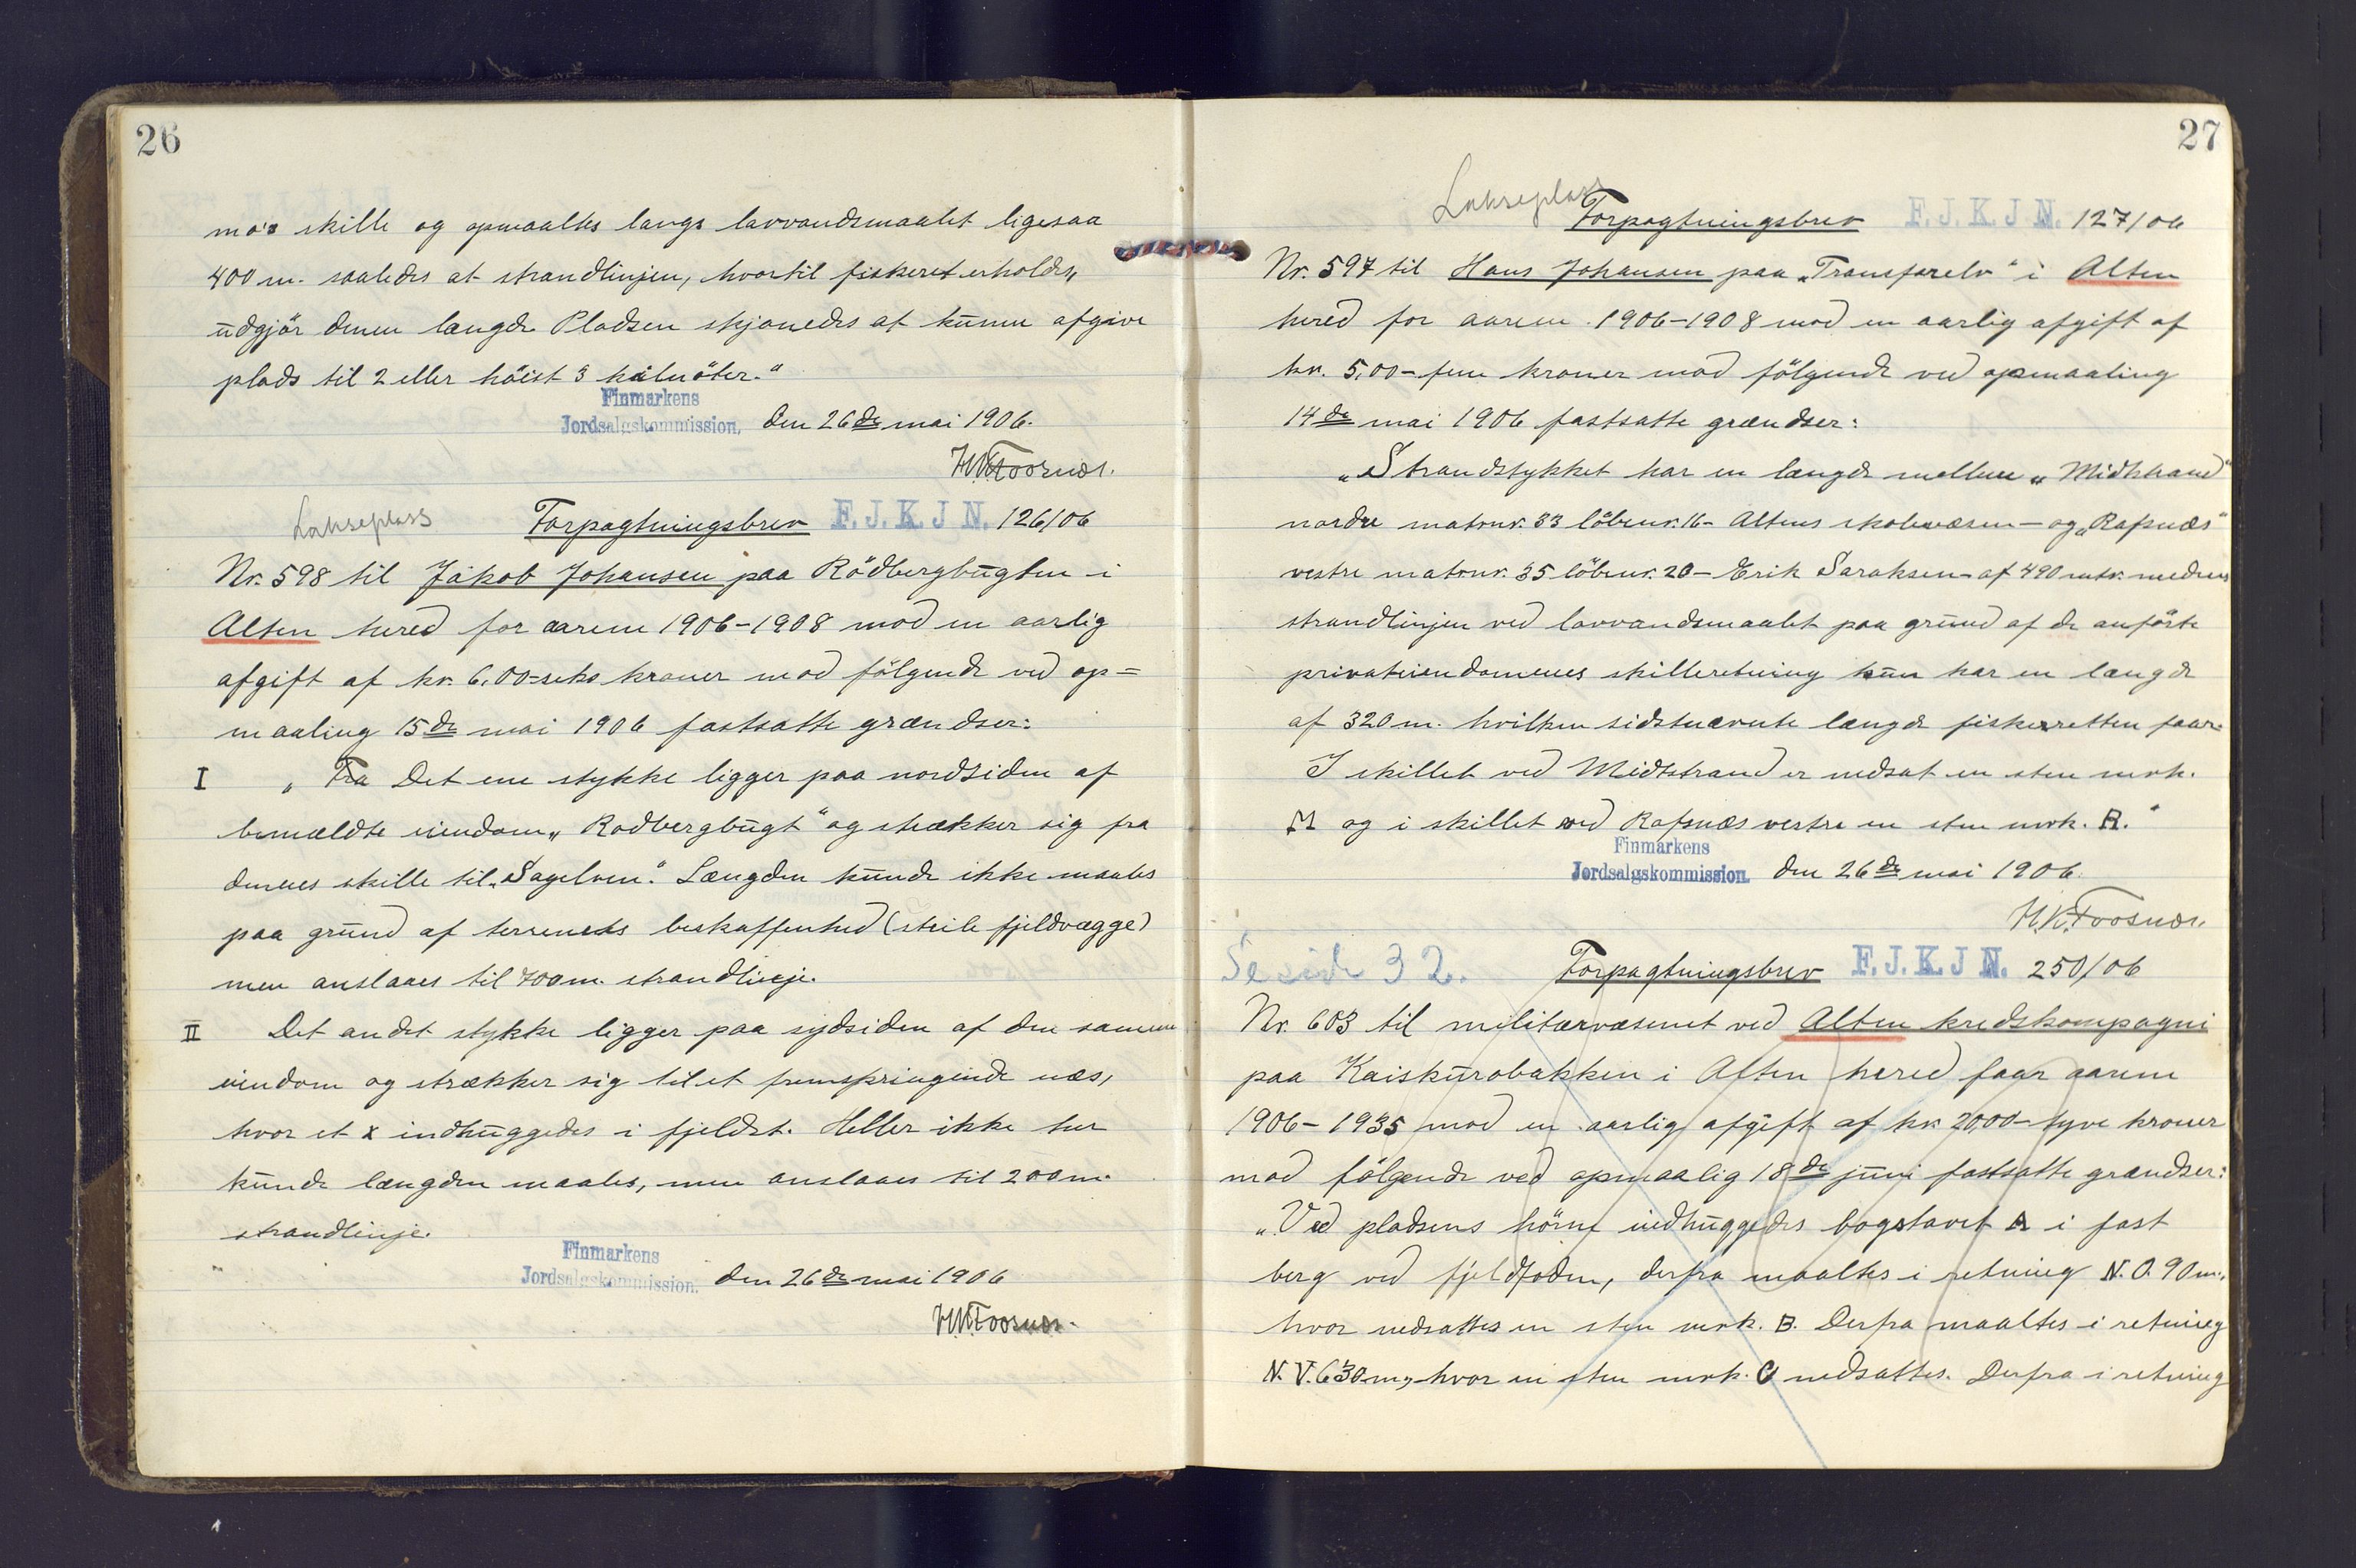 26
mo's skille og opmaaltes langs lavvandsmaalet ligesaa
400 m. saaledes at strandlinjen, hvortil fiskeret erholdes,
udgjör denne længde. Pladsen skjønedes at kunne afgive
plads til 2 eller höist 3 kilnöter."
Finmarkens
Jordsalgskommission, den 26de mai 1906.
H.K. Foosnæs.
Lakseplass Forpagtningsbrev F. J. K. J N. 126/06
Nr. 598 til Jakob Johansen paa Rödbergbugten i
Alten hered for aarene 1906-1908 mod en aarlig
afgift af kr. 6,00-seks kroner mod fölgende ved op=
maaling 15de mai 1906 fastsatte grændser:
I „Fra Det ene stykke ligger paa nordsiden af
bemældte eiendom „Rodbergbugt" og strækker sig fra
dennes skille til „Sagelven". Længden kunde ikke maales
paa grund af terrenets beskaffenhed (steile fjeldvægge)
men anslaaes til 700 m. strandlinje.
II Det andet stykke ligger paa sydsiden af den samme
eiendom og strækker sig til et fremspringende næs,
hvor et x indhuggedes i fjeldet. Heller ikke her
kunde længden maales, men anslaaes til 200 m.
strandlinje.
Finmarkens
Jordsalgskommission. den 26de mai 1906
H.K. Foosnæs.
27
Lakseplass
Forpagtningsbrev F. J. K. J N. 127/06
Nr. 597 til Hans Johansen paa „Transfarelv" i Alten
hered for aarene 1906-1908 mod en aarlig afgift af
kr. 5,00-fem kroner mod fölgende ved opmaaling
14de mai 1906 fastsatte grændser:
„Strandstykket har en længde mellem „Midtstrand"
nordre matrnr. 33 löbenr. 16 - Altens skolevæsen - og „Rafsnæs"
vestre matrnr. 35 löbenr. 20 - Erik Saraksen - af 490 mtr. medens
strandlinjen ved lavvandsmaalet paa grund af de anförte
privateiendommenes skilleretning kun har en længde
af 320 m. hvilken sidstnævnte længde fiskerretten faar.
I skillet ved Midtstrand er nedsat en sten mrk.
M og i skillet ved Rafsnæs vestre en sten mrk. R."
Finmarkens
Jordsalgskommission. den 26de mai 1906.
H.K. Foosnæs.
Se side 32. Forpagtningsbrev F. J. K. J N. 250/06
Nr. 603 til militærvæsenet ved Alten kredskompagni
paa Kaiskurobakken i Alten hered faar aarene
1906-1935 mod en aarlig afgift af kr. 20,00-tyve kroner
mod fölgende ved opmaalig 18de juni fastsatte grændser:
„Ved pladsens hörne indhuggedes bogstavet A i fast
berg ved fjeldfoden, derfra maaltes i retning N.O. 90 m.,
hvor nedsattes en sten mrk. B. Derfra maaltes i retning
N.V. 630 m, hvor en sten mrk. C nedsattes. Derfra i retning